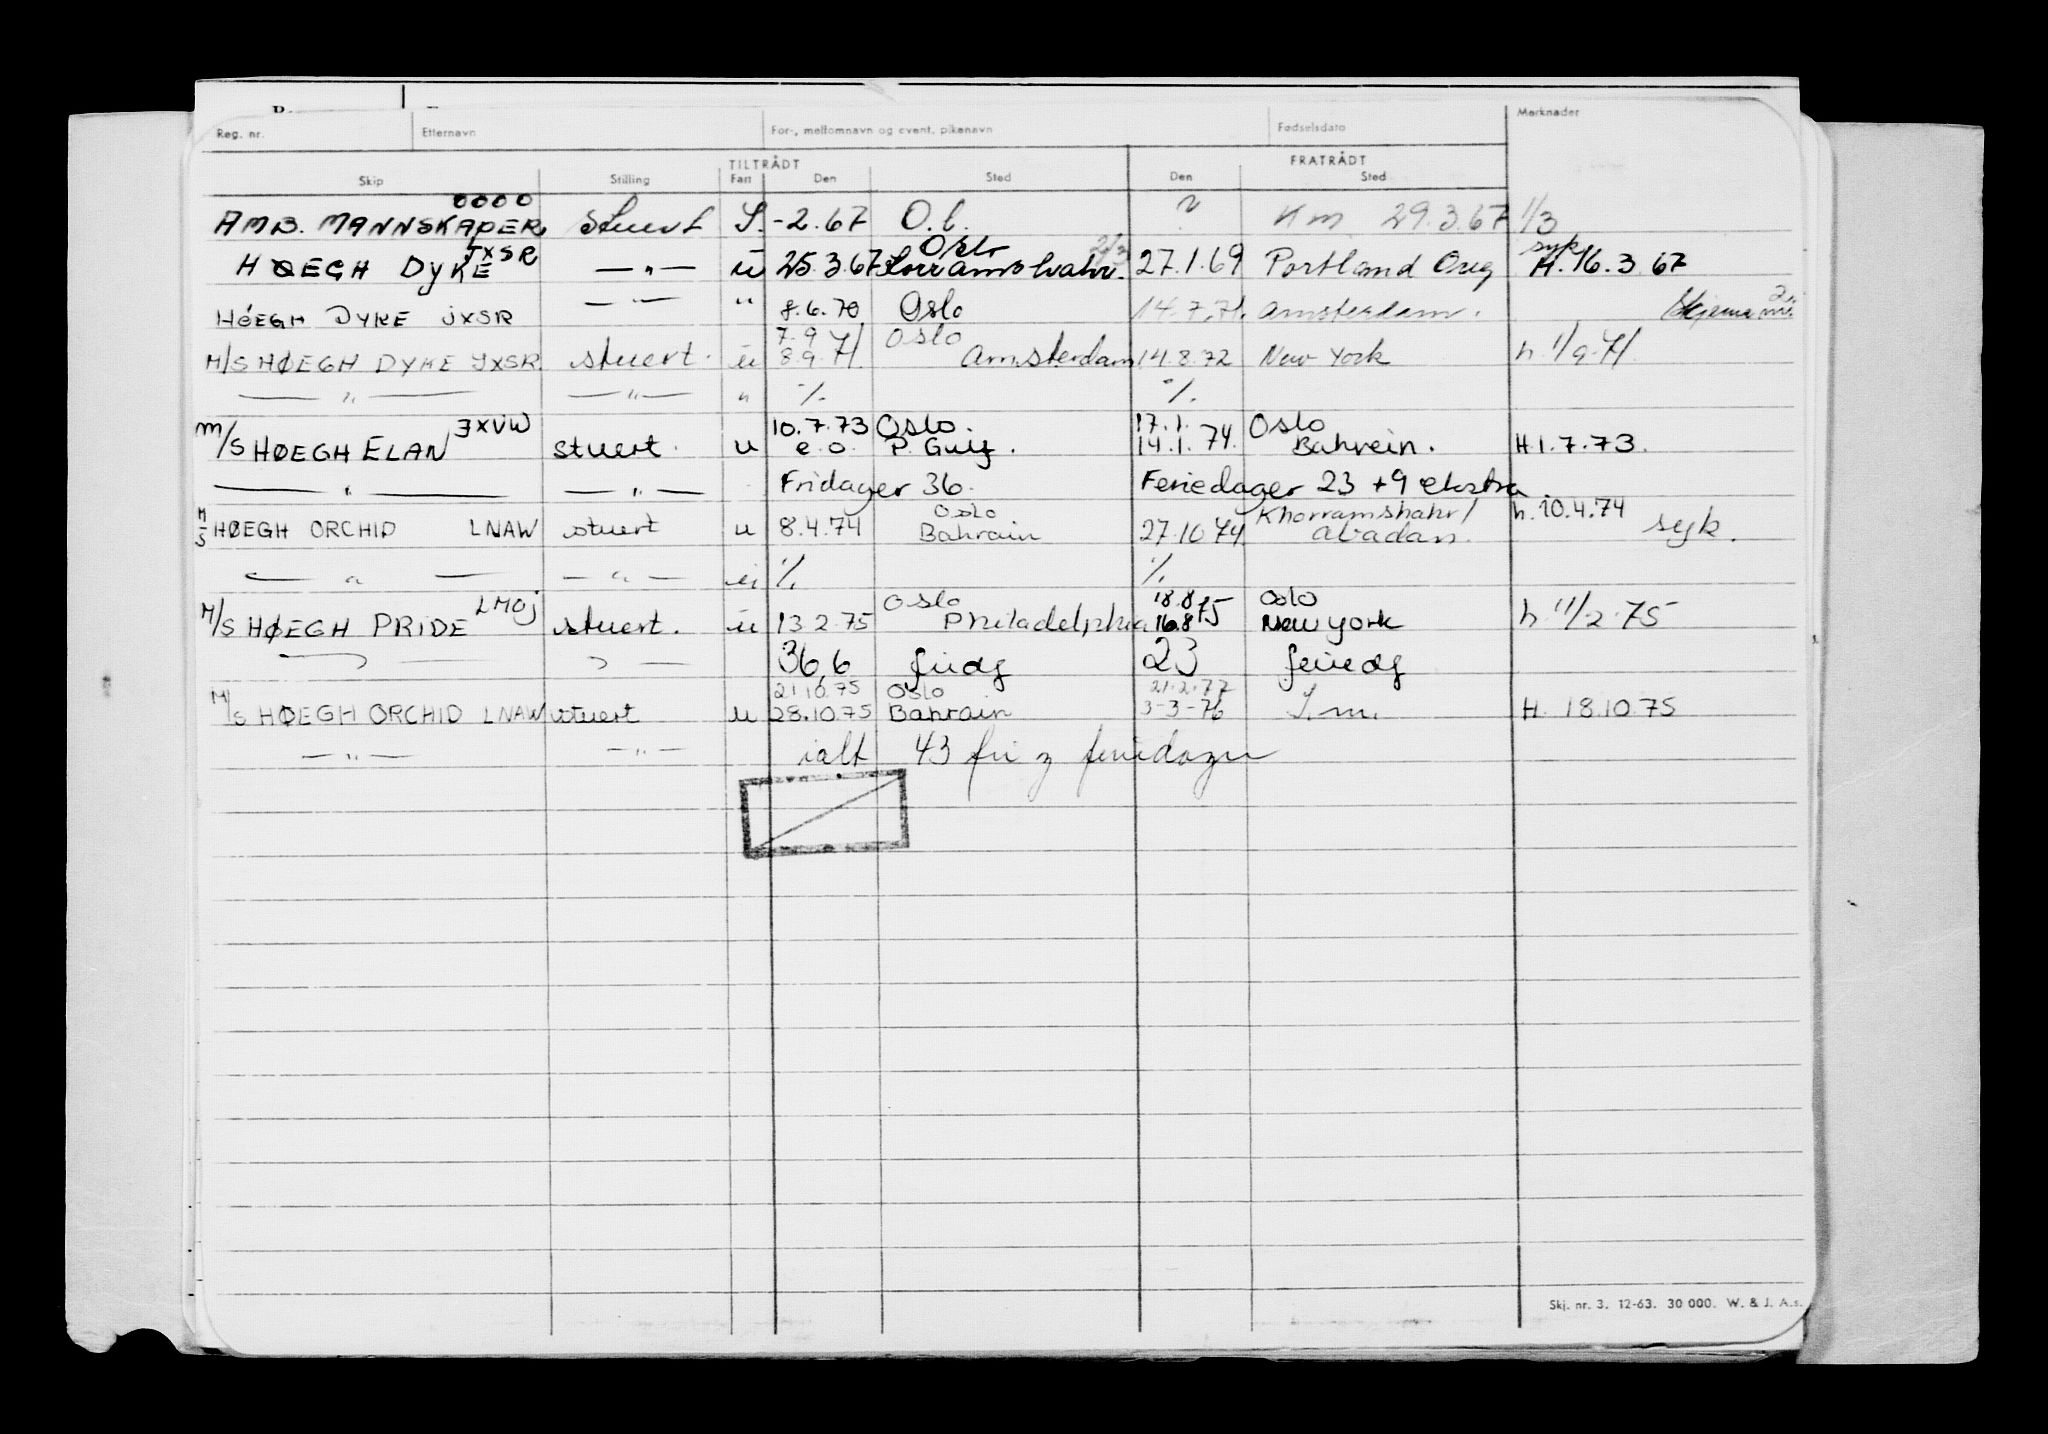 Reg. nr. Etternavn For-, mellomnavn og event. pikenavn Fødselsdato Merknader
TILTRÅDT FRATRÅDT
Skip Stilling Fart Den Sted Den Sted
0000
AMB. MANNSKAPER stuert S. -2.67 O.l. 29.3.67 1/3
JXSR Oslo syk
HØEGH DYKE — " — u 25.3.67 27.1.69 Portland Oreg H. 16.3.67
HØEGH DYKE JXSR — " — " 8.6.70 Oslo 14.7.71. Amsterdam. Skjema
7.9 Oslo
M/S HØEGH DYKE JXSR. stuert. u 8.9.71. Amsterdam 14.8.72 New York h. 1/9-71.
— " — — " — " %. %.
JXVW 10.7.73 Oslo. 17.1. Oslo
M/S HØEGH ELAN stuert. u e.o. P. Gulf. 14.1.74. Bahrein. H.1.7.73.
— " — — " — Fridager 36. Feriedager 23 + 9 ekstra.
Oslo Khorramshahr/
M/S HØEGH ORCHID LNAW stuert u 8.4.74 Bahrain 27.10.74. Abadan. h. 10.4.74 syk.
— " — — " — u %. %.
LMOJ Oslo 18.8 Oslo
M/S HØEGH PRIDE stuert. u 13.2.75 Philadelphia 16.8 75 New York h 11/2-75
36,6 fridg 23 feriedg
21.10.75 Oslo 21.2.77
M/S HØEGH ORCHID LNAW stuert u 28.10.75 Bahrain 3-3-76 S.m. H. 18.10.75
— " — — " — ialt 43 fri og feriedager
Skj. nr. 3. 12-63. 30 000. W. & J. A.s.